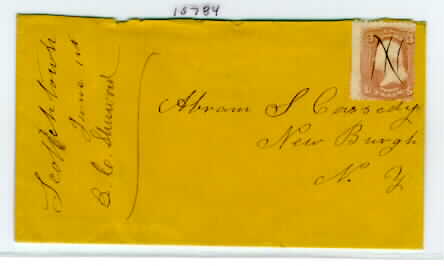 15784
Scotchtown
June 14
B. C. Sherwood
Abram S Cassedy
New Burgh
N. Y